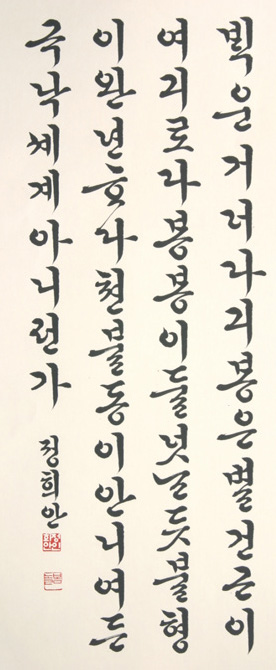 빅운거더라긔봉은별건곤이
여긔로다봉봉이둘넛난듯불형
이완년ᄒᆞ다천불동이안니여든
극낙셰계아니런가
정희안